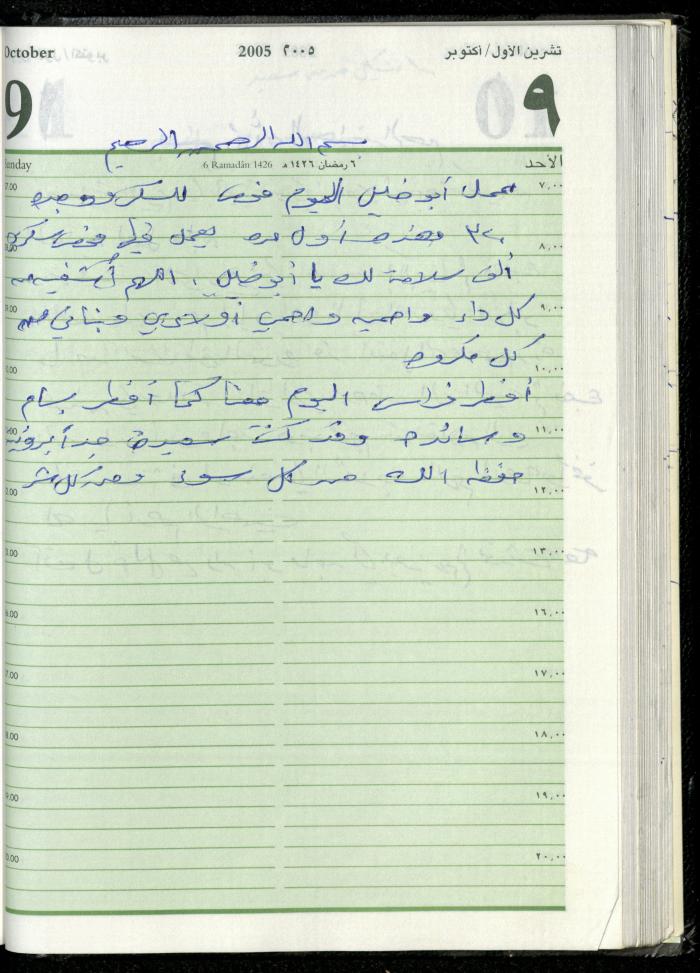 October 2005 ٢٠٠٥ تشرين الأول/أكتوبر
9 ٩
بسم الله الرحمن الرحيم
unday 6 Ramadân 1426 ٦ رمضان ١٤٢٦ هـ الأحد
7.00 عمل أبو خليل اليوم فحص للسكر ووجده ٧,٠٠
٣٢٠ وهذه أول مره يعمل فيها فحص سكري ٨,٠٠
ألف سلامة لك يا أبو خليل ، اللهم أشفيه من
كل داء واحميه واحمي أولادي وبناتي من ٩,٠٠
كل مكروه ١٠,٠٠
أفطر فراس اليوم معنا كما أفطر بسام
وسائده وقد كنت سعيدة جدا برؤيته ١١,٠٠
حفظه الله من كل سوء ومن كل شر ١٢,٠٠
١٣,٠٠
١٦,٠٠
7.00 ١٧,٠٠
8.00 ١٨,٠٠
9.00 ١٩,٠٠
0.00 ٢٠,٠٠